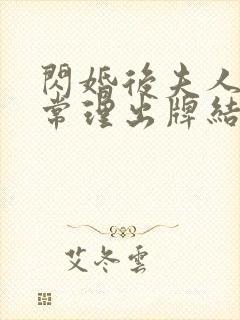 閃婚後夫人
常理出牌結
艾冬雲